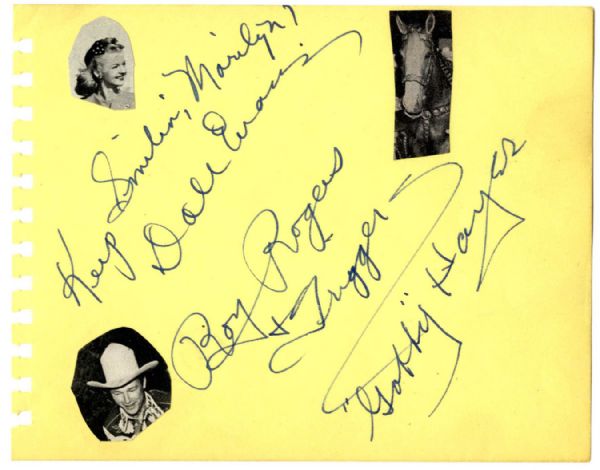 Keep Smilin', Marilyn!
Dale Evans
Roy Rogers
+ Trigger
"Gabby" Hayes